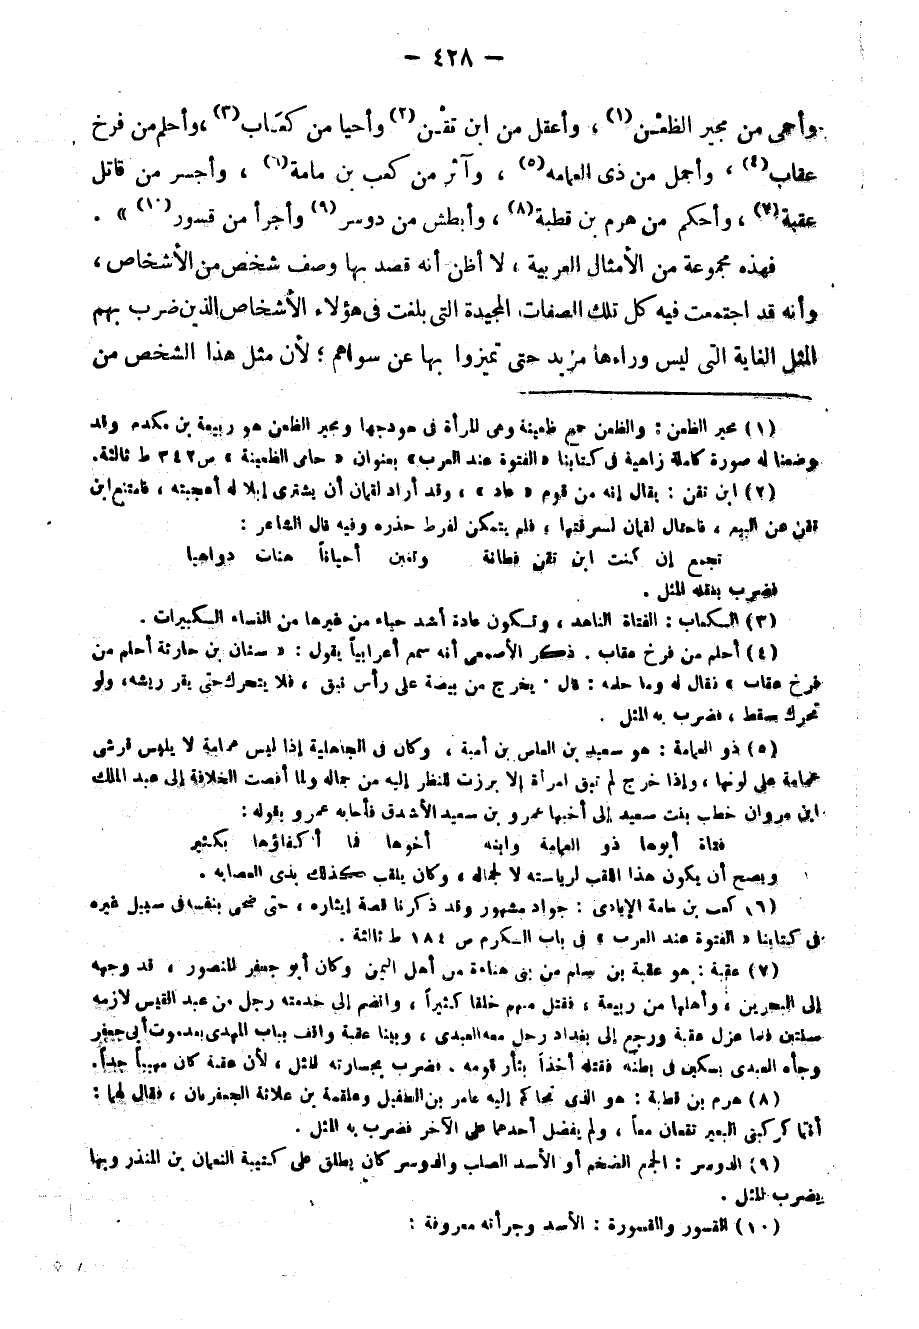 — ٤٢٨ —
وأحمى من مجير الظعن(١) ، وأعقل من ابن تقن(٢) وأحيا من كعاب(٣) ،وأحلم من فرخ
عقاب(٤) ، وأجمل من ذى العمامه(٥) ، وآثر من كعب بن مامة(٦) ، وأجسر من قاتل
عقبة(٧) ، وأحكم من هرم بن قطبة(٨) ، وأبطش من دوسر(٩) وأجرأ من قسور(١٠) » .
فهذه مجموعة من الأمثال العربية ، لا أظن أنه قصد بها وصف شخص من الأشخاص ،
وأنه قد اجتمعت فيه كل تلك الصفات المجيدة التى بلغت فى هؤلاء الأشخاص الذين ضرب بهم
المثل الغاية التى ليس وراءها مزيد حتى تميزوا بها عن سواهم ؛ لأن مثل هذا الشخص من
(١) مجير الظعن : والظعن جمع ظعينة وهى المرأة فى هودجها ومجير الظعن هو ربيعة بن مكدم وقد
وضعنا له صورة كاملة زاهية فى كتابنا «الفتوة عند العرب» بعنوان « حامى الظعينة » ص ٣٤٢ ط ثالثة.
(٢) ابن تقن : يقال إنه من قوم « عاد » ، وقد أراد لقمان أن يشترى إبلا له أعجبته ، فامتنع ابن
تقن عن البيع ، فاحتال لقمان لسرقتها ، فلم يتمكن لفرط حذره وفيه قال الشاعر :
تجمع إن كنت ابن تقن فطانة وتغبن أحياناً هنات دواهيا
فضرب بعقله المثل .
(٣) الكعاب : الفتاة الناهد ، وتكون عادة أشد حياء من غيرها من النساء الكبيرات .
(٤) أحلم من فرخ عقاب . ذكر الأصمعى أنه سمع أعرابياً يقول : « سنان بن حارثة أحلم من
فرخ عقاب » فقال له وما حلمه : قال ' يخرج من بيضة على رأس نيق ، فلا يتحرك حتى يقر ريشه، ولو
تحرك سقط ، فضرب به المثل .
(٥) ذو العمامة : هو سعيد بن العاص بن أمية ، وكان فى الجاهلية إذا لبس عمامة لا يلبس قرشى
عمامة على لونها ، وإذا خرج لم تبق امرأة إلا برزت للنظر إليه من جماله ولما أفضت الخلافة إلى عبد الملك
ابن مروان خطب بنت سعيد إلى أخيها عمرو بن سعيد الأشدق فأجابه عمرو بقوله :
فتاة أبوها ذو العمامة وابنه أخوها فما أكفاؤها بكثير
ويصح أن يكون هذا اللقب لرياسته لا لجماله ، وكان يلقب كذلك بذى العصابه .
(٦) كعب بن مامة الإيادى : جواد مشهور وقد ذكرنا قصة إيثاره ، حتى ضحى بنفسه فى سبيل غيره
فى كتابنا « الفتوة عند العرب » فى باب الكرم ص ١٨٤ ط ثالثة .
(٧) عقبة : هو عقبة بن سلم من بنى هناءة من أهل اليمن وكان أبو جعفر المنصور ، قد وجهه
إلى البحرين ، وأهلها من ربيعة ، فقتل منهم خلقا كثيراً ، وانضم إلى خدمته رجل من عبد القيس لازمه
سنتين فلما عزل عقبة ورجع إلى بغداد رحل معه العبدى ، وبينا عقبة واقف بباب المهدى بعد موت أبى جعفر
وجأه العبدى بسكين فى بطنه فقتله أخذاً بثأر قومه . فضرب بجسارته المثل ، لأن عقبة كان مهيباً جداً.
(٨) هرم بن قطبة : هو الذى تحاكم إليه عامر بن الطفيل وعلقمة بن علاثة الجعفريان ، فقال لهما :
أنتما كركبتى البعير تقعان معاً ، ولم يفضل أحدهما على الآخر فضرب به المثل .
(٩) الدوسر : الجمل الضخم أو الأسد الصلب والدوسر كان يطلق على كتيبة النعمان بن المنذر وبها
يضرب المثل .
(١٠) القسور والقسورة : الأسد وجرأته معروفة :